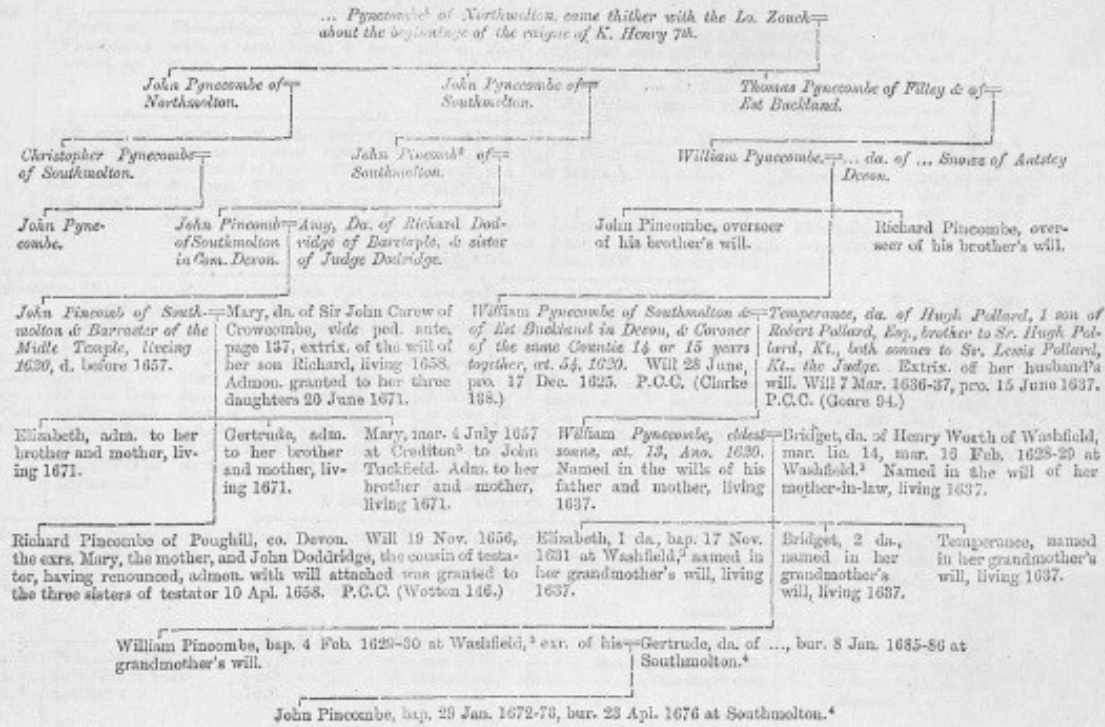 ... Pynecombe¹ of Northmolton, came thither with the Lo. Zouch
about the beginninge of the raigne of K. Henry 7th.
John Pynecombe of
Northmolton.
John Pynecombe of
Southmolton.
Thomas Pynecombe of Filley & of
Est Buckland.
Christopher Pynecombe
of Southmolton.
John Pincomb² of
Southmolton.
William Pynecombe. ... da. of ... Snowe of Antstey
Devon.
John Pyne-
combe.
John Pincomb
of Southmolton
in Com. Devon.
Amy, Da. of Richard Dod-
ridge of Barstaple, & sister
of Judge Dodridge.
John Pincombe, overseer
of his brother's will.
Richard Pincombe, over-
seer of his brother's will.
John Pincomb of South-
molton & Barraeter of the
Midle Temple, liveing
1620, d. before 1657.
Mary, da. of Sir John Carew of
Crowcombe, vide ped. ante,
page 137, extrix. of the will of
her son Richard, living 1658.
Admon. granted to her three
daughters 20 June 1671.
William Pynecombe of Southmolton &
of Est Buckland in Devon, & Coroner
of the same Countie 14 or 15 years
together, æt. 54, 1620. Will 28 June,
pro. 17 Dec. 1625. P.C.C. (Clarke
138.)
Temperance, da. of Hugh Pollard, 1 son of
Robert Pollard, Esq., brother to Sr. Hugh Pol-
lard, Kt., both sonnes to Sr. Lewis Pollard,
Kt., the Judge. Extrix. of her husband's
will. Will 7 Mar. 1636-37, pro. 15 June 1637.
P.C.C. (Goare 94.)
Elizabeth, adm. to her
brother and mother, liv-
ing 1671.
Gertrude, adm.
to her brother
and mother, liv-
ing 1671.
Mary, mar. 4 July 1657
at Crediton⁵ to John
Tuckfield. Adm. to her
brother and mother,
living 1671.
William Pynecombe, eldest
sonne, æt. 13, Ano. 1620.
Named in the wills of his
father and mother, living
1637.
Bridget, da. of Henry Worth of Washfield,
mar. lic. 14, mar. 16 Feb. 1628-29 at
Washfield.³ Named in the will of her
mother-in-law, living 1637.
Richard Pincombe of Poughill, co. Devon. Will 19 Nov. 1656,
the exrs. Mary, the mother, and John Doddridge, the cousin of testa-
tor, having renounced, admon. with will attached was granted to
the three sisters of testator 10 Apl. 1658. P.C.C. (Wotton 146.)
Elizabeth, 1 da., bap. 17 Nov.
1631 at Washfield,³ named in
her grandmother's will, living
1637.
Bridget, 2 da.,
named in her
grandmother's
will, living 1637.
Temperance, named
in her grandmother's
will, living 1637.
William Pincombe, bap. 4 Feb. 1629-30 at Washfield,³ exr. of his
grandmother's will.
Gertrude, da. of ..., bur. 8 Jan. 1685-86 at
Southmolton.⁴
John Pincombe, bap. 29 Jan. 1672-73, bur. 23 Apl. 1676 at Southmolton.⁴